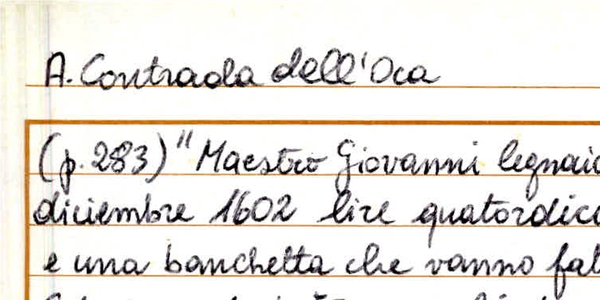 A. Contrada dell'Oca
(p. 283) "Maestro Giovanni legnaio
diciembre 1602 lire quatordici
e una banchetta che vanno